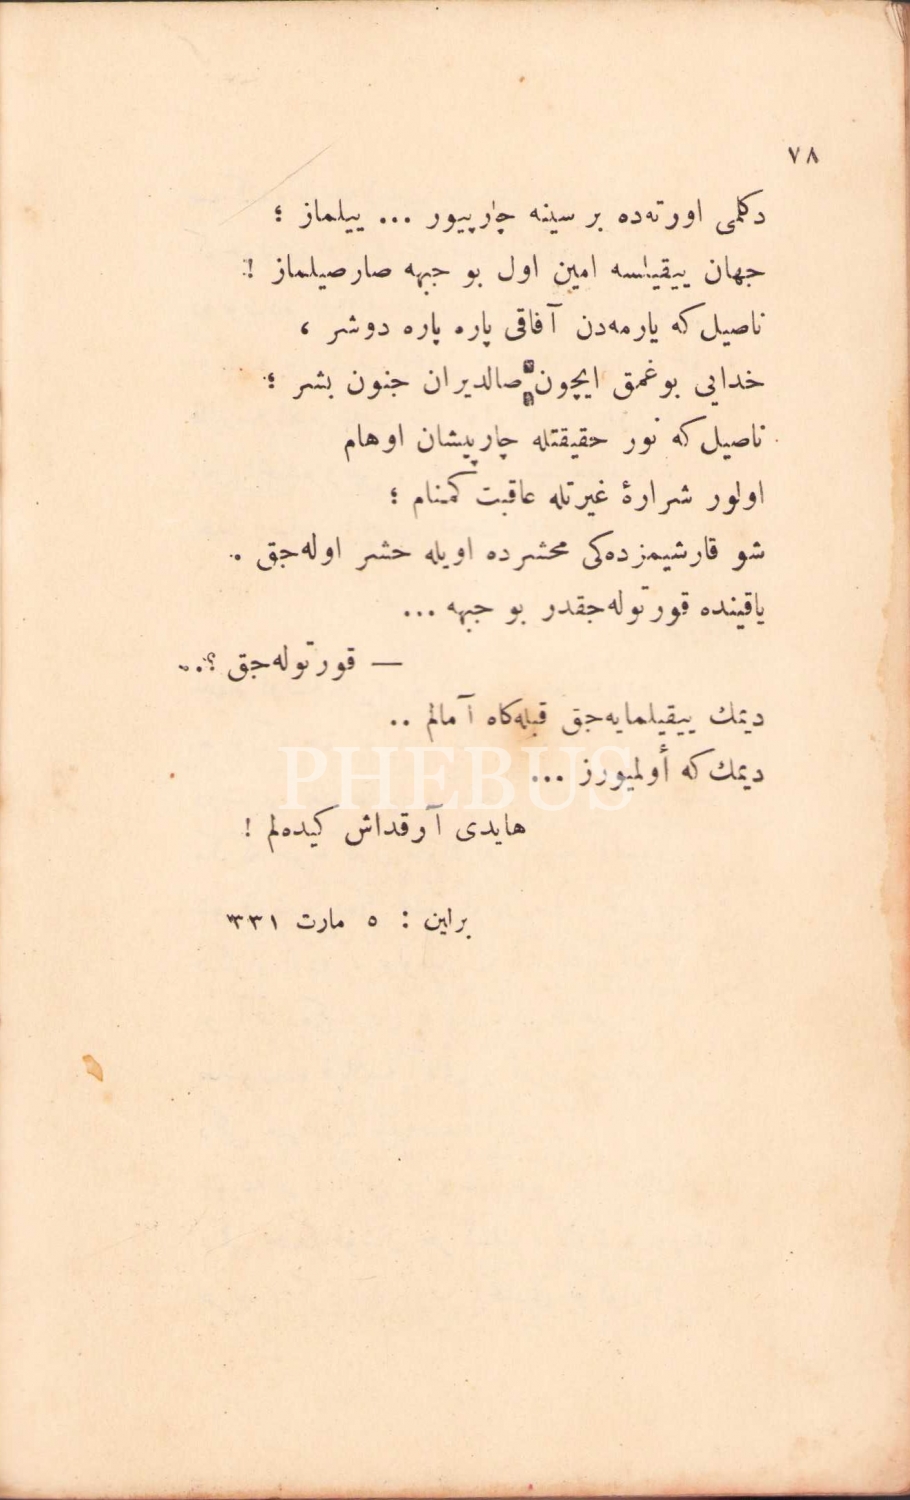 ٧٨
دكلمی اورته‌ده بر سینه چارپیور ... ییلماز ؛
جهان ییقیلسه امین اول بو جبهه صارصیلماز !
ناصیل كه یارمه‌دن آفاقی پاره پاره دوشر ،
خدایی بوغمق ایچون صالدیران جنون بشر ؛
ناصیل كه نور حقیقتله چارپیشان اوهام
اولور شرارۀ غیرتله عاقبت كمنام ؛
شو قارشیمزده‌كی محشرده اویله حشر اوله‌جق .
یاقینده قورتوله‌جقدر بو جبهه ...
— قورتوله‌جق ؟..
دیمك ییقیلمایه‌جق قبله‌كاه آمالم ..
دیمك كه أولمیورز ...
هایدی آرقداش كیده‌لم !
برلین : ٥ مارت ٣٣١
PHEBUS